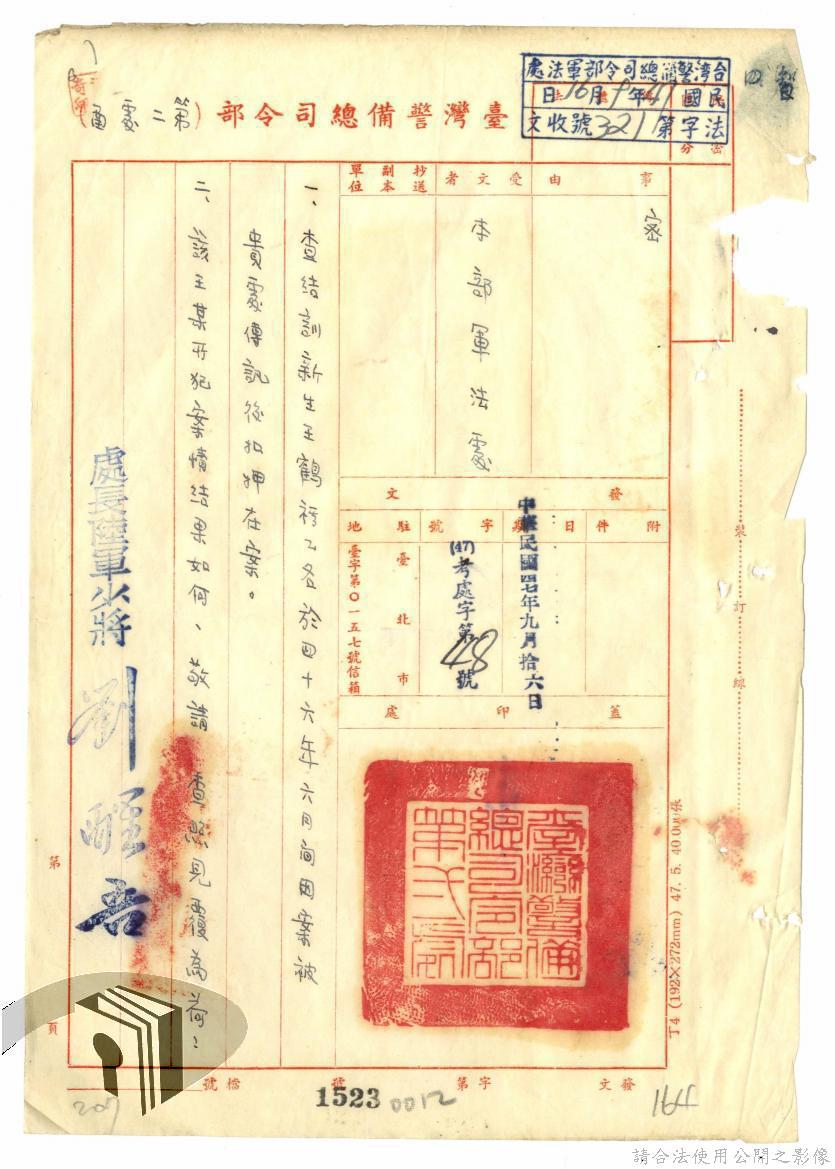 臺灣警備總司令部（第二處函）
台灣警備總司令部軍法處
民國47年9月16日
法字第3217號收文
事由
密
受文者
本部軍法處
抄送副本單位
發文
附件
日期
中華民國四七年九月拾六日
字號
(47)考處字第
號
駐地
臺北市
臺字第〇一五七號信箱
蓋印處
臺灣警備總司令部第二處
一、查結訓新生王鶴
於四十六年六月間因案被
貴處傳訊後扣押在案。
二、該王某所犯案情結果如何、敬請 查照見覆為荷！
處長陸軍少將 劉醒吾
裝訂線
丁4 (192×272mm) 47. 5. 40.000張
第
頁
發文
字第
號
檔號
1523
0012
164
207
請合法使用公開之影像